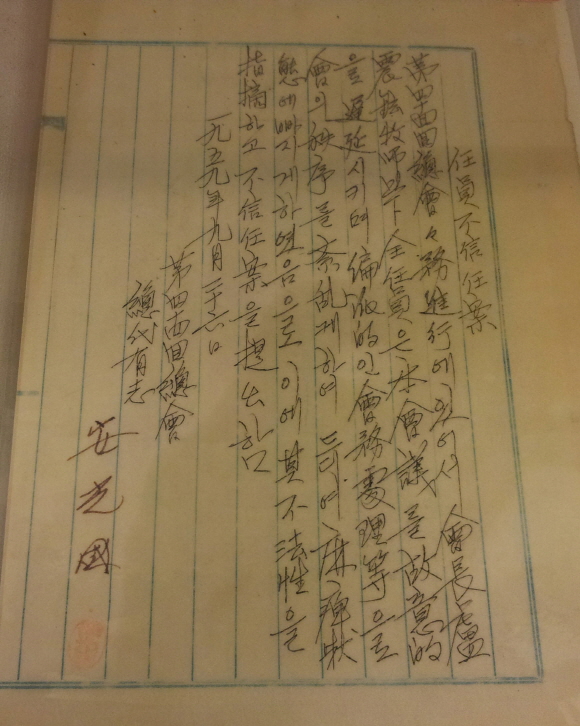 任員不信任案
第四四回總會々務進行에있어서 會長盧
震鉉牧師以下 全任員은 本會議를 故意的
으로 遲延시키며 偏派的인 會務處理等으로
會의 秩序를 紊亂케하여 드디어 麻痺狀
態에빠지게하였음으로 이에 其不法性을
指摘하고 不信任案을 提出함
一九五九年九月二十六日
第四四回總會
總代有志
安光國